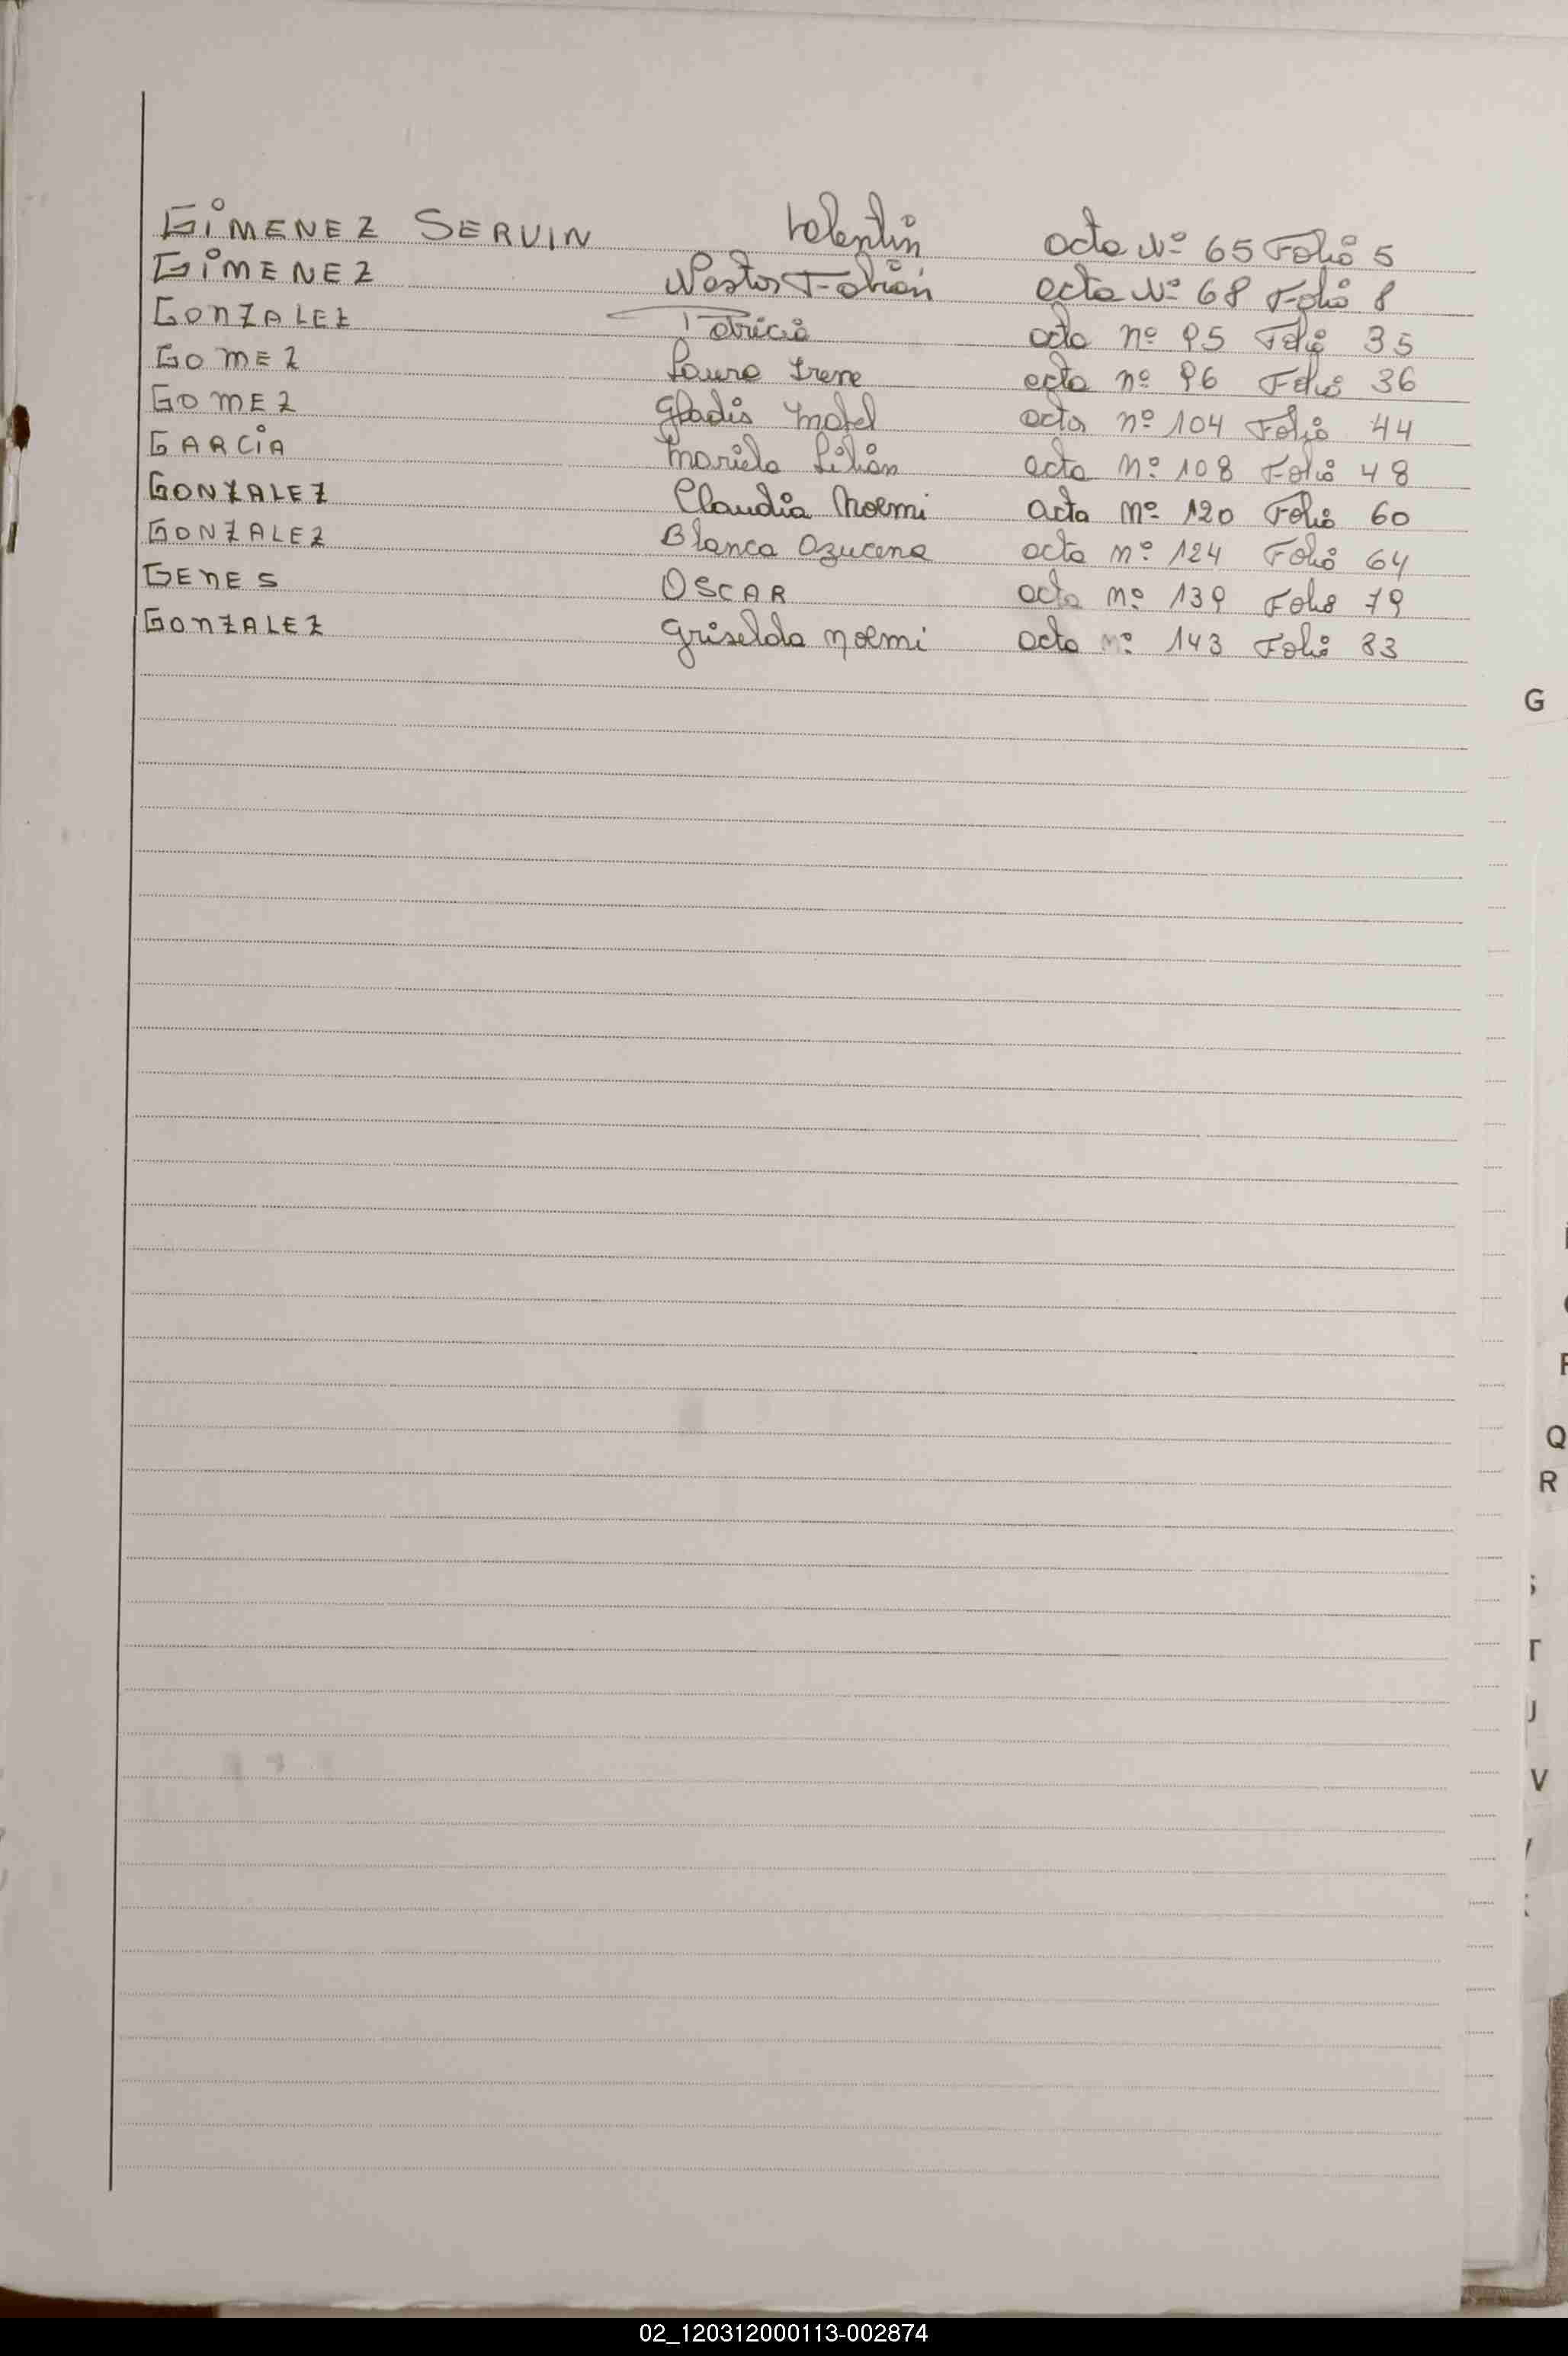 GIMENEZ SERVIN Valentin acta Nº 65 Folio 5
GIMENEZ Nestor Fabián acta Nº 68 Folio 8
GONZALEZ Patricia acta nº 95 Folio 35
GOMEZ Laura Irene acta nº 96 Folio 36
GOMEZ Gladis Mabel acta nº 104 Folio 44
GARCIA Mariela Lilián acta nº 108 Folio 48
GONZALEZ Claudia Noemi acta nº 120 Folio 60
GONZALEZ Blanca Azucena acta nº 124 Folio 64
GENES OSCAR acta nº 139 Folio 79
GONZALEZ Griselda Noemi acta nº 143 Folio 83
G
Q
R
T
U
V
02_120312000113-002874